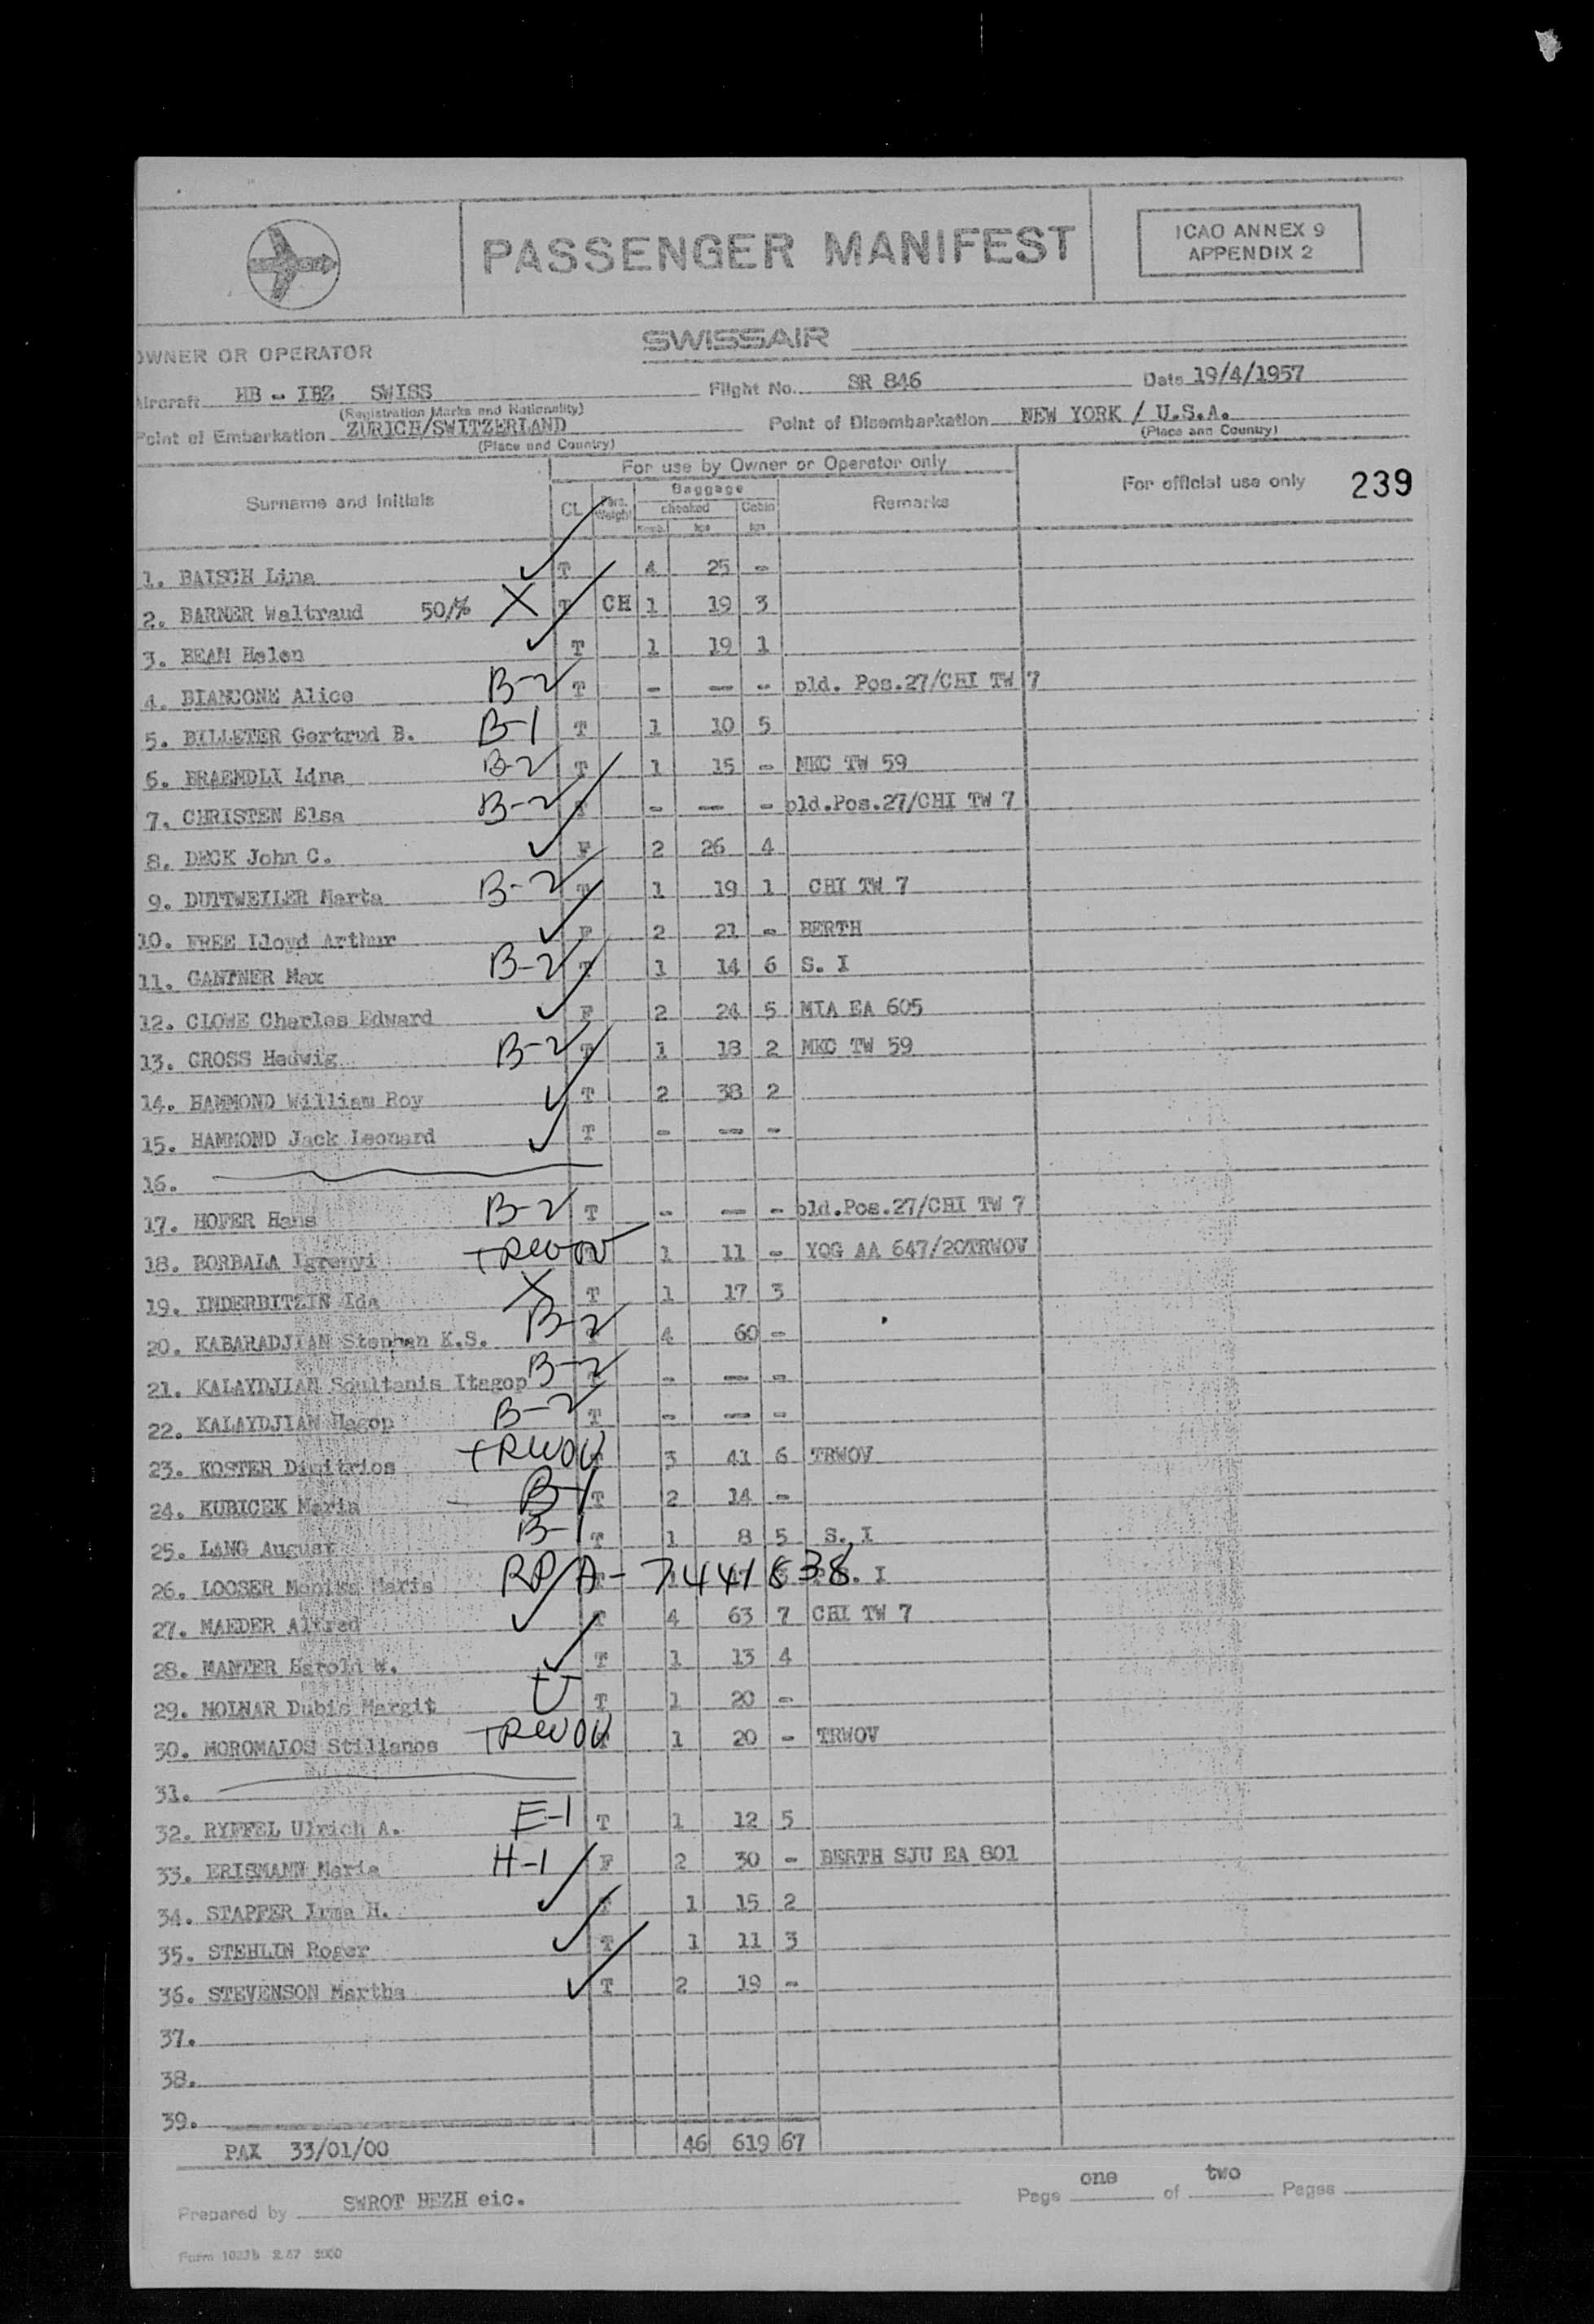 PASSENGER MANIFEST
ICAO ANNEX 9
APPENDIX 2
SWISSAIR
OWNER OR OPERATOR
Aircraft HB - IBZ SWISS Flight No. SR 846 Date 19/4/1957
(Registration Marks and Nationality)
Point of Embarkation ZURICH/SWITZERLAND Point of Disembarkation NEW YORK / U.S.A.
(Place and Country) (Place and Country)
For use by Owner or Operator only
Surname and Initials CL Pers. Weight Baggage checked kgs Cabin kgs Remarks For official use only 239
1. BAISCH Lina ✓ T 4 25 -
2. BARNER Waltraud 50/% X T CH 1 19 3
3. BEAM Helen ✓ T 1 19 1
4. BIANCONE Alice B-2 T - -- - pld. Pos.27/CHI TW 7
5. BILLETER Gertrud B. B-1 T 1 10 5
6. BRAENDLI Idna B-2 T 1 15 - MKC TW 59
7. CHRISTEN Elsa B-2 T - -- - pld.Pos.27/CHI TW 7
8. DECK John C. ✓ F 2 26 4
9. DUTTWEILER Marta B-2 T 1 19 1 CHI TW 7
10. FREE Lloyd Arthur ✓ F 2 21 - BERTH
11. GANTNER Max B-2 T 1 14 6 S. I
12. CLOWE Charles Edward ✓ F 2 24 5 MIA EA 605
13. GROSS Hedwig B-2 T 1 18 2 MKC TW 59
14. HAMMOND William Roy ✓ T 2 38 2
15. HAMMOND Jack Leonard ✓ T - -- -
16.
17. HOFER Hans B-2 T - -- - pld.Pos.27/CHI TW 7
18. BORBALA Igrenyi TRWOV 1 11 - YQG AA 647/20TRWOV
19. INDERBITZIN Ida X T 1 17 3
20. KABARADJIAN Stephan K.S. B-2 T 4 60 -
21. KALAYDJIAN Soultanis Itagop B-2 T - -- -
22. KALAYDJIAN Hagop B-2 T - -- -
23. KOSTER Dimitrios TRWOV T 3 41 6 TRWOV
24. KUBICEK Maria B-1 T 2 14 -
25. LANG August B-1 T 1 8 5 S. I
26. LOOSER Monika Maria RP/A-7441838 I
27. MAEDER Alfred ✓ T 4 63 7 CHI TW 7
28. MANTER Harold W. ✓ T 1 13 4
29. MOLNAR Dubis Margit T 1 20 -
30. MOROMALOS Stillanos TRWOV T 1 20 - TRWOV
31.
32. RYFFEL Ulrich A. E-1 T 1 12 5
33. ERISMANN Maria H-1 F 2 30 - BERTH SJU EA 801
34. STAPFER Irma H. ✓ T 1 15 2
35. STEHLIN Roger ✓ T 1 11 3
36. STEVENSON Martha ✓ T 2 19 -
37.
38.
39.
PAX 33/01/00 46 619 67
Prepared by SWROT HEZH eic. Page one of two Pages
Form